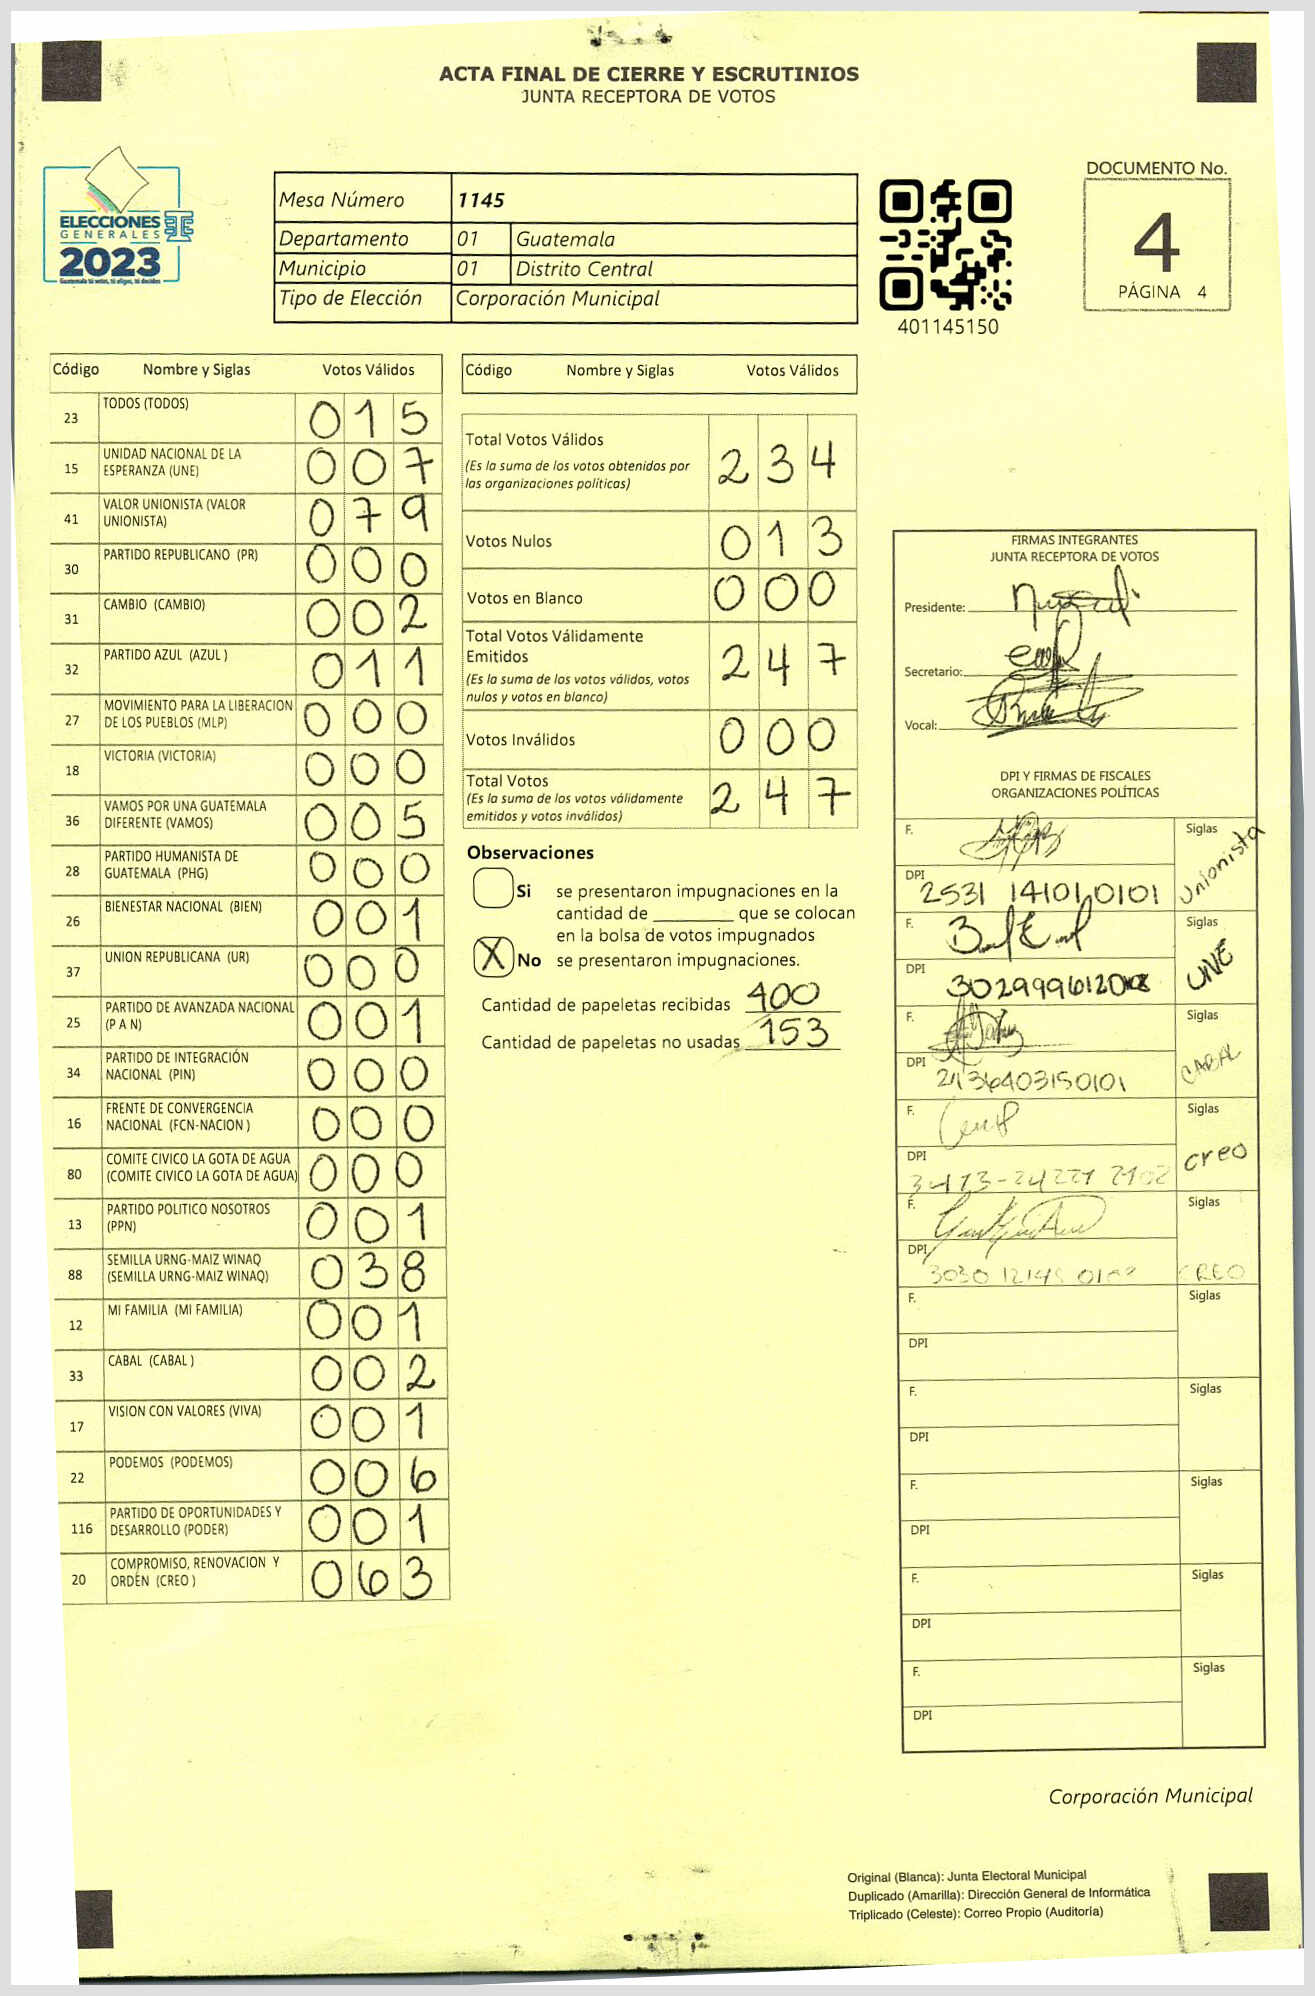 ACTA FINAL DE CIERRE Y ESCRUTINIOS
JUNTA RECEPTORA DE VOTOS
ELECCIONES
GENERALES
2023
Guatemala tú votas, tú eliges, tú decides
Mesa Número 1145
Departamento 01 Guatemala
Municipio 01 Distrito Central
Tipo de Elección Corporación Municipal
401145150
DOCUMENTO No.
4
PÁGINA 4
Código Nombre y Siglas Votos Válidos
23 TODOS (TODOS) 015
15 UNIDAD NACIONAL DE LA ESPERANZA (UNE) 007
41 VALOR UNIONISTA (VALOR UNIONISTA) 079
30 PARTIDO REPUBLICANO (PR) 000
31 CAMBIO (CAMBIO) 002
32 PARTIDO AZUL (AZUL ) 011
27 MOVIMIENTO PARA LA LIBERACION DE LOS PUEBLOS (MLP) 000
18 VICTORIA (VICTORIA) 000
36 VAMOS POR UNA GUATEMALA DIFERENTE (VAMOS) 005
28 PARTIDO HUMANISTA DE GUATEMALA (PHG) 000
26 BIENESTAR NACIONAL (BIEN) 001
37 UNION REPUBLICANA (UR) 000
25 PARTIDO DE AVANZADA NACIONAL (P A N) 001
34 PARTIDO DE INTEGRACIÓN NACIONAL (PIN) 000
16 FRENTE DE CONVERGENCIA NACIONAL (FCN-NACION ) 000
80 COMITE CIVICO LA GOTA DE AGUA (COMITE CIVICO LA GOTA DE AGUA) 000
13 PARTIDO POLITICO NOSOTROS (PPN) 001
88 SEMILLA URNG-MAIZ WINAQ (SEMILLA URNG-MAIZ WINAQ) 038
12 MI FAMILIA (MI FAMILIA) 001
33 CABAL (CABAL ) 002
17 VISION CON VALORES (VIVA) 001
22 PODEMOS (PODEMOS) 006
116 PARTIDO DE OPORTUNIDADES Y DESARROLLO (PODER) 001
20 COMPROMISO, RENOVACION Y ORDEN (CREO ) 063
Código Nombre y Siglas Votos Válidos
Total Votos Válidos 234
(Es la suma de los votos obtenidos por
las organizaciones políticas)
Votos Nulos 013
Votos en Blanco 000
Total Votos Válidamente
Emitidos 247
(Es la suma de los votos válidos, votos
nulos y votos en blanco)
Votos Inválidos 000
Total Votos 247
(Es la suma de los votos válidamente
emitidos y votos inválidos)
Observaciones
Si se presentaron impugnaciones en la
cantidad de ________ que se colocan
en la bolsa de votos impugnados
X No se presentaron impugnaciones.
Cantidad de papeletas recibidas 400
Cantidad de papeletas no usadas 153
FIRMAS INTEGRANTES
JUNTA RECEPTORA DE VOTOS
Presidente:
Secretario:
Vocal:
DPI Y FIRMAS DE FISCALES
ORGANIZACIONES POLÍTICAS
F. Siglas Unionista
DPI 2531 14101 0101
F. Siglas UNE
DPI
F. Siglas CABAL
DPI
F. Siglas creo
DPI
F. Siglas CREO
DPI
F. Siglas
DPI
F. Siglas
DPI
F. Siglas
DPI
F. Siglas
DPI
F. Siglas
DPI
Corporación Municipal
Original (Blanca): Junta Electoral Municipal
Duplicado (Amarilla): Dirección General de Informática
Triplicado (Celeste): Correo Propio (Auditoría)